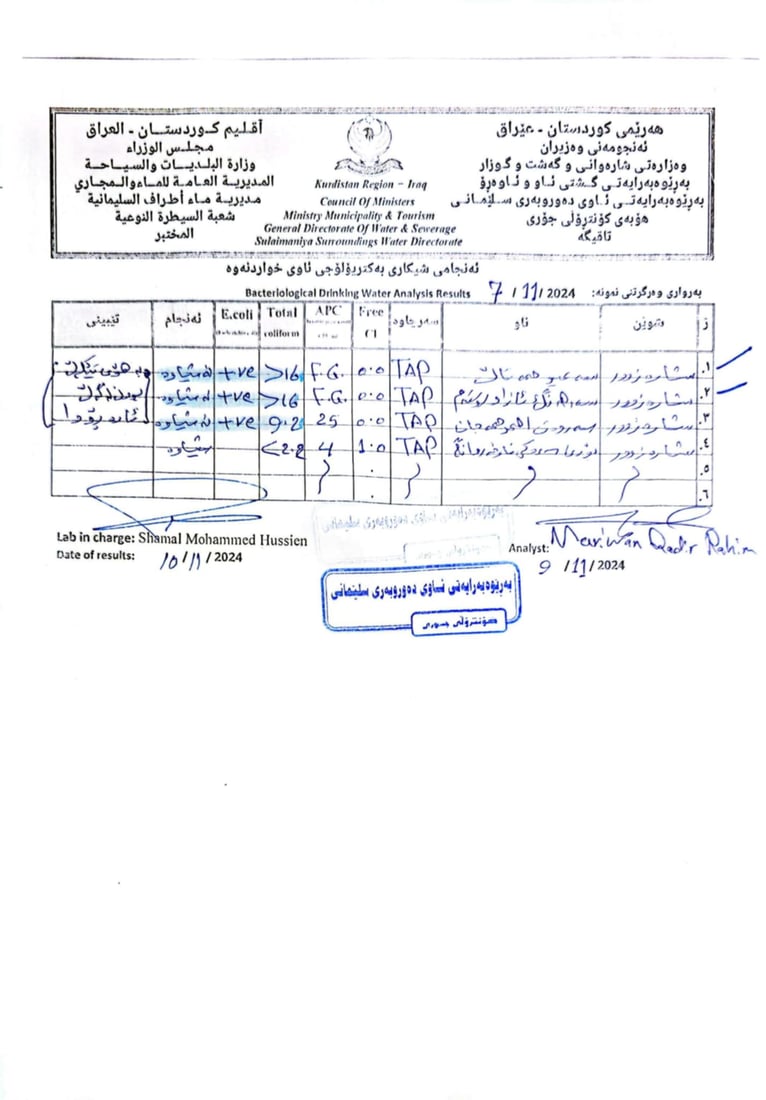 هەرێمی کوردستان - عێراق
ئەنجومەنی وەزیران
وەزارەتی شارەوانی و گەشت و گوزار
بەڕێوەبەرایەتی گشتی ئاو و ئاوەڕۆ
بەڕێوەبەرایەتی ئاوی دەوروبەری سلێمانی
هۆبەی کۆنترۆڵی جۆری
تاقیگە
Kurdistan Region - Iraq
Council Of Ministers
Ministry Municipality & Tourism
General Directorate Of Water & Sewerage
Sulaimaniya Surroundings Water Directorate
أقليم كوردستان - العراق
مجلس الوزراء
وزارة البلديات والسياحة
المديرية العامة للماء والمجاري
مديرية ماء أطراف السليمانية
شعبة السيطرة النوعية
المختبر
ئەنجامی شیکاری بەکتریۆلۆجی ئاوی خواردنەوە
بەرواری وەرگرتنی نمونە: 7 / 11 / 2024 Bacteriological Drinking Water Analysis Results
ژ شوێن ناو سەرچاوە Free Cl APC Total coliform E.coli ئەنجام تێبینی
.١ شارەزوور TAP 0.0 F.G. >16 +ve نەشیاوە
.٢ شارەزوور TAP 0.0 F.G. >16 +ve نەشیاوە
.٣ شارەزوور TAP 0.0 25 9.2 +ve نەشیاوە
.٤ شارەزوور TAP 1.0 4 <2.2 شیاوە
.٥
.٦
Lab in charge: Shamal Mohammed Hussien
Date of results: 10 / 11 / 2024
Analyst: Mariwan Qadir Rahim
9 / 11 / 2024
بەڕێوەبەرایەتی ئاوی دەوروبەری سلێمانی
کۆنترۆڵی جۆری